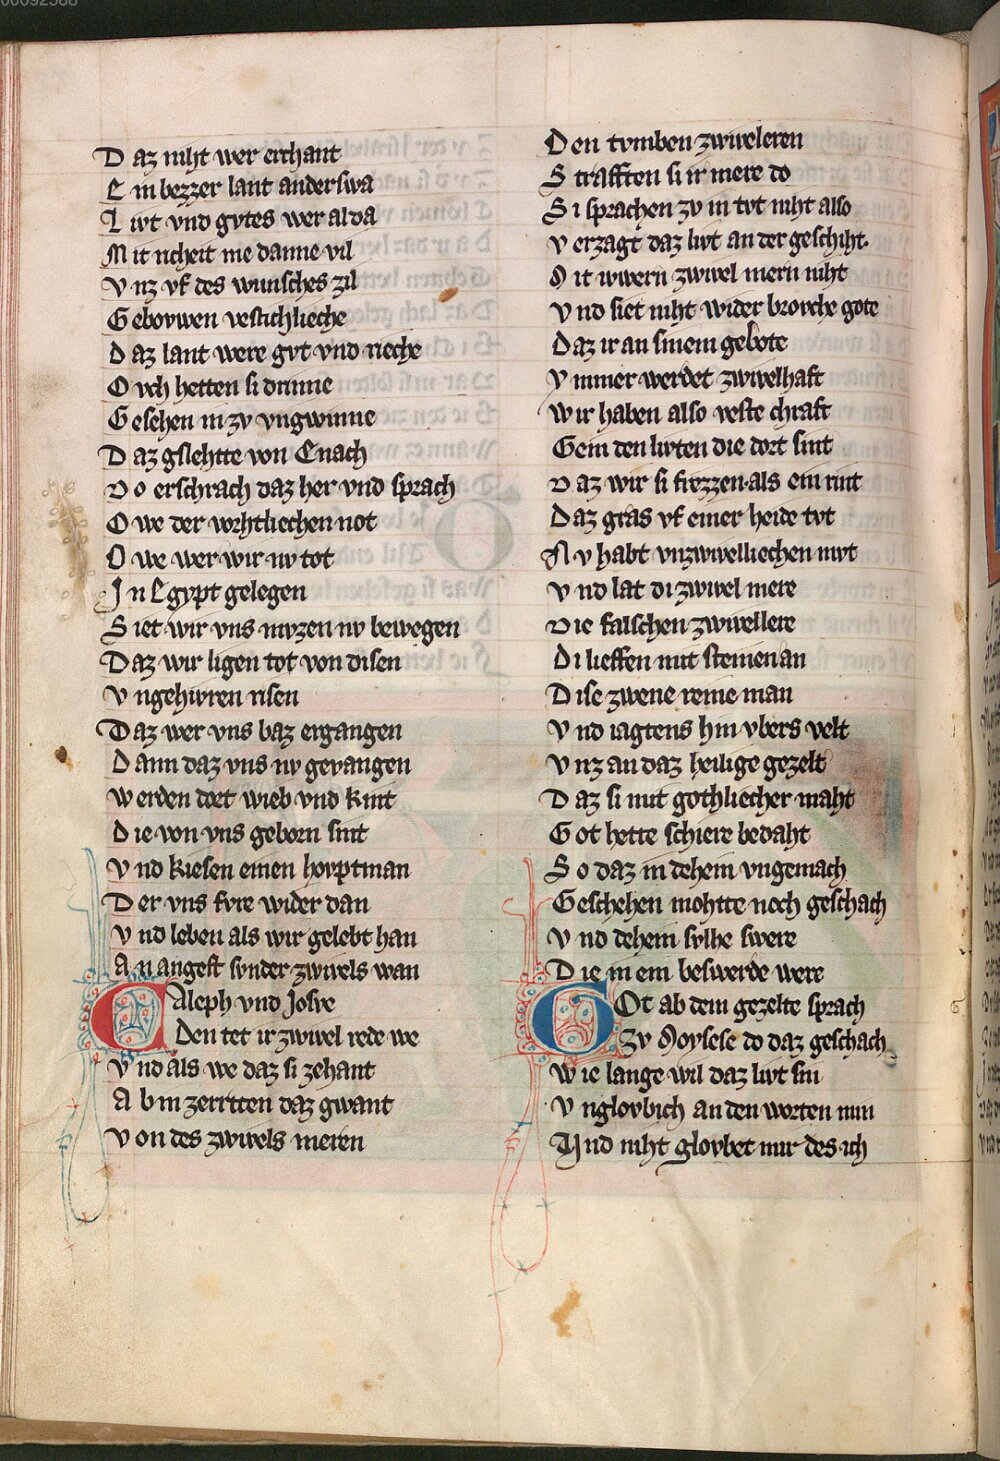 00092588
Daz niht wer erchant
Ein bezzer lant anderswa
Livt vnd gvtes wer alda
Mit richeit me danne vil
Vnz vf des wunsches zil
Geborwen vestichlieche
Daz lant were gvt vnd rieche
Ovch hetten si drinne
Gesehen in zv vngwinne
Daz gslehtte von Enach
Do erschrach daz her vnd sprach
Owe der vorhtliechen not
Owe wer wir nv tot
In Egypt gelegen
Siet wir vns mvzen nv bewegen
Daz wir ligen tot von disen
Vngehivren risen
Daz wer vns baz ergangen
Dann daz vns nv gevangen
Werden dort wieb vnd kint
Die von vns geborn sint
Vnd kiesen einen hovptman
Der vns fvre wider dan
Vnd leben als wir gelebt han
An angest svnder zwivels wan
Caleph vnd Josve
Den tet ir zwivel rede we
Vnd als we daz si zehant
Ab in zerrtten daz gwant
Von des zwivels meren
Den tvmben zwiveleren
Strafften si ir mere do
Si sprachen zv in tvt niht also
Verzagt daz livt an der geschiht.
Mit iwern zwivel mern niht
Vnd siet niht wider brovche gote
Daz ir an sinem gebote
Vmmer werdet zwivelhaft
Wir haben also veste chraft
Gein den livten die dort sint
Daz wir si frezzen als ein rint
Daz gras vf einer heide tvt
Nv habt vnzwivelliechen mvt
Vnd lat di zwivel mere
Die falschen zwivellere
Di lieffen mit steinen an
Dise zwene reine man
Vnd iagtens hin vbers velt
Vnz an daz heilige gezelt
Daz si mit gothliecher maht
Got hette schiere bedaht
So daz in dehein vngemach
Geschehen mohtte noch geschach
Vnd dehein sylhe swere
Die in ein beswerde were
Got ab dem gezelte sprach
Zv Moysese do daz geschach
Wie lange wil daz livt sin
Vnglovbich an den worten min
Vnd niht glovbet mir des ich